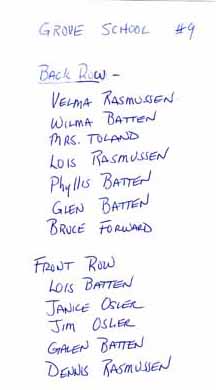 GROVE SCHOOL #9
BACK ROW -
VELMA RASMUSSEN
WILMA BATTEN
MRS. TOLAND
LOIS RASMUSSEN
Phyllis BATTEN
GLEN BATTEN
BRUCE FORWARD
FRONT ROW
LOIS BATTEN
JANICE OSLER
JIM OSLER
GALEN BATTEN
DENNIS RASMUSSEN